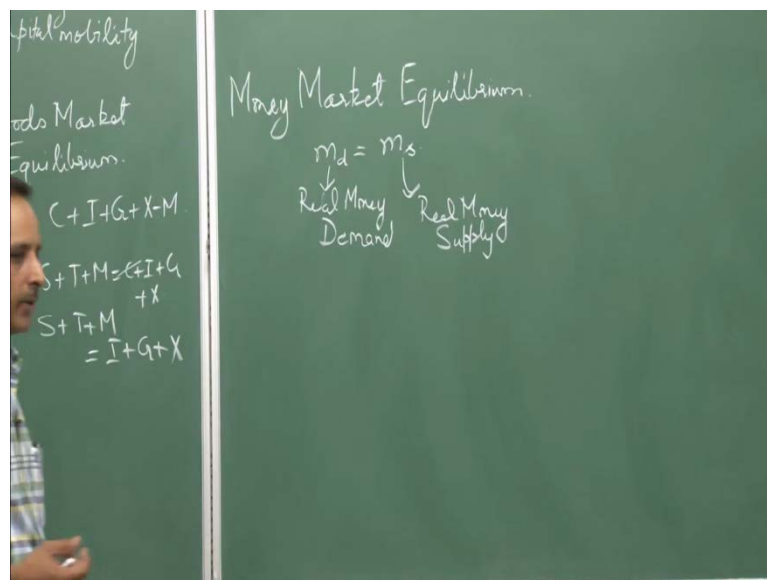 pital mobility
ods Market
Equilibrium.
C+I+G+X-M
S+T+M=C+I+G
+X
S+T+M
=I+G+X
Money Market Equilibrium.
md = ms
Real Money
Demand
Real Money
Supply